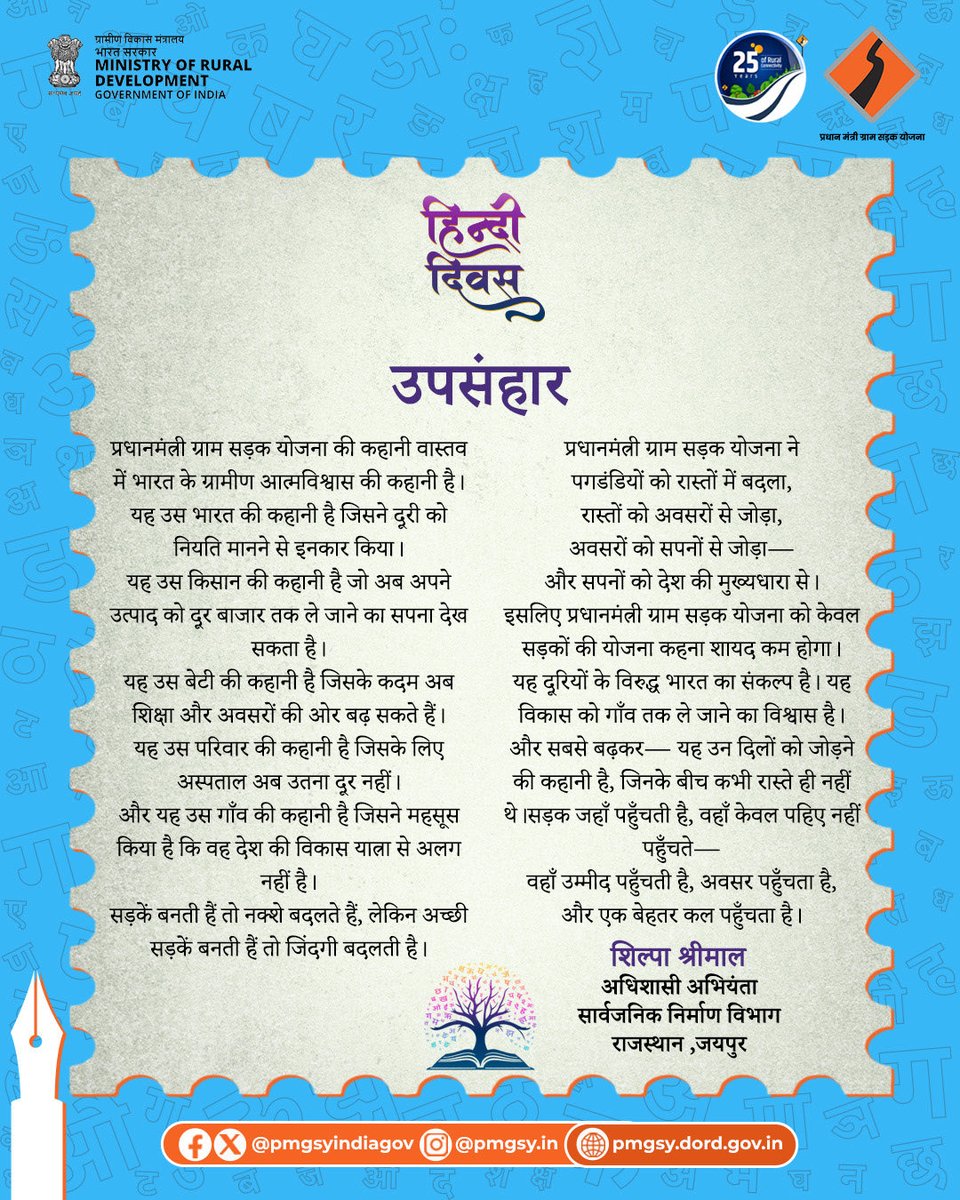 ग्रामीण विकास मंत्रालय
भारत सरकार
MINISTRY OF RURAL
DEVELOPMENT
GOVERNMENT OF INDIA
सत्यमेव जयते
25
Years
of Rural
Connectivity
प्रधान मंत्री ग्राम सड़क योजना
हिन्दी
दिवस
उपसंहार
प्रधानमंत्री ग्राम सड़क योजना की कहानी वास्तव
में भारत के ग्रामीण आत्मविश्वास की कहानी है।
यह उस भारत की कहानी है जिसने दूरी को
नियति मानने से इनकार किया।
यह उस किसान की कहानी है जो अब अपने
उत्पाद को दूर बाजार तक ले जाने का सपना देख
सकता है।
यह उस बेटी की कहानी है जिसके कदम अब
शिक्षा और अवसरों की ओर बढ़ सकते हैं।
यह उस परिवार की कहानी है जिसके लिए
अस्पताल अब उतना दूर नहीं।
और यह उस गाँव की कहानी है जिसने महसूस
किया है कि वह देश की विकास यात्रा से अलग
नहीं है।
सड़कें बनती हैं तो नक्शे बदलते हैं, लेकिन अच्छी
सड़कें बनती हैं तो जिंदगी बदलती है।
प्रधानमंत्री ग्राम सड़क योजना ने
पगडंडियों को रास्तों में बदला,
रास्तों को अवसरों से जोड़ा,
अवसरों को सपनों से जोड़ा—
और सपनों को देश की मुख्यधारा से।
इसलिए प्रधानमंत्री ग्राम सड़क योजना को केवल
सड़कों की योजना कहना शायद कम होगा।
यह दूरियों के विरुद्ध भारत का संकल्प है। यह
विकास को गाँव तक ले जाने का विश्वास है।
और सबसे बढ़कर— यह उन दिलों को जोड़ने
की कहानी है, जिनके बीच कभी रास्ते ही नहीं
थे।सड़क जहाँ पहुँचती है, वहाँ केवल पहिए नहीं
पहुँचते—
वहाँ उम्मीद पहुँचती है, अवसर पहुँचता है,
और एक बेहतर कल पहुँचता है।
शिल्पा श्रीमाल
अधिशासी अभियंता
सार्वजनिक निर्माण विभाग
राजस्थान ,जयपुर
@pmgsyindiagov @pmgsy.in pmgsy.dord.gov.in